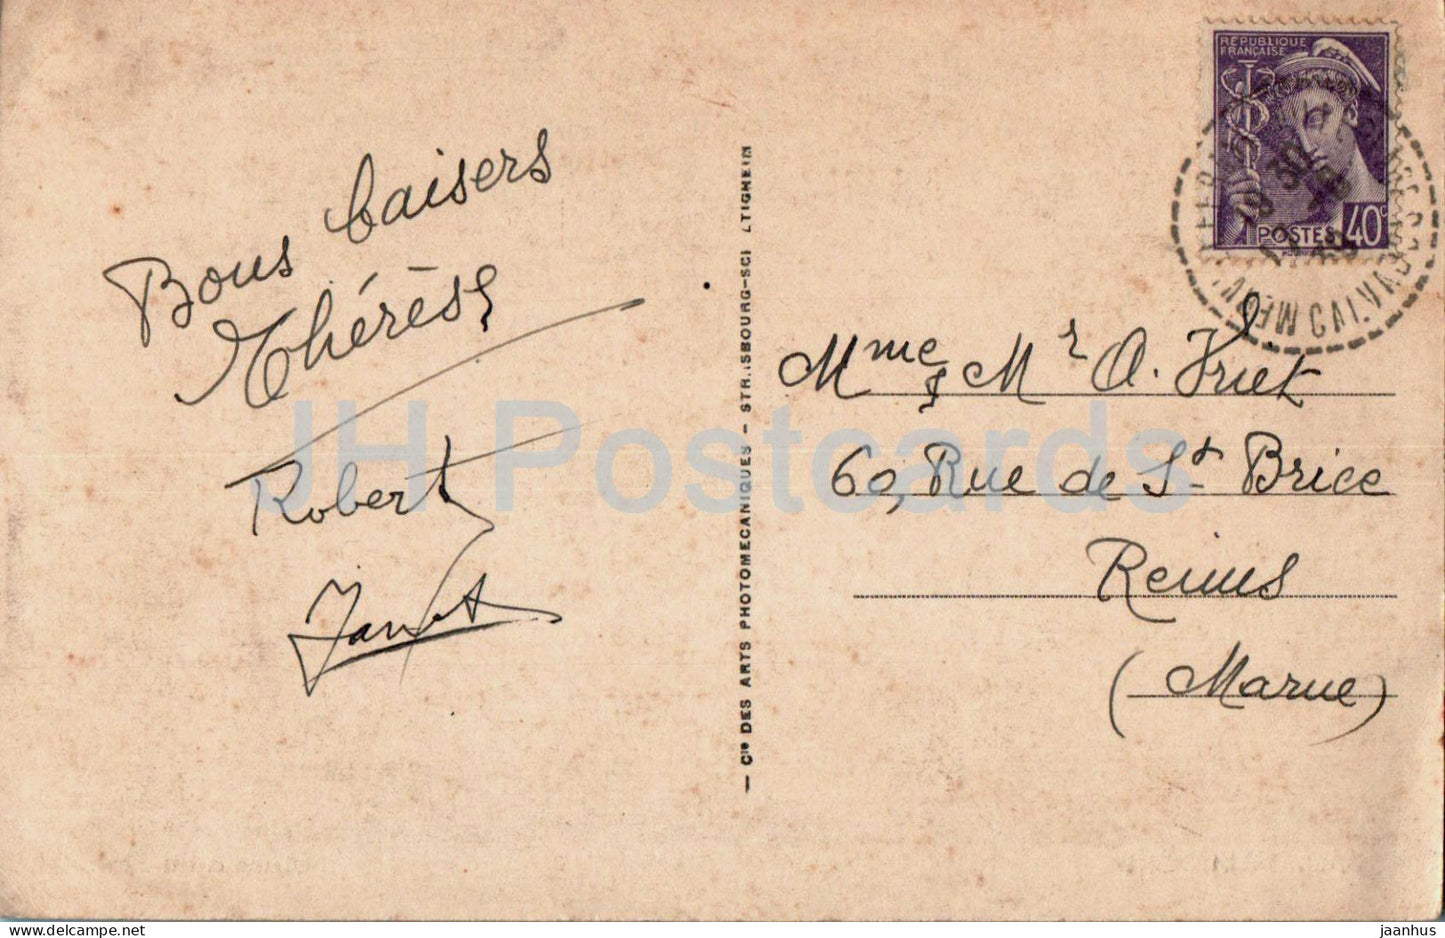 Bons baisers
Thérèse
Robert
Janet
— Cie DES ARTS PHOTOMECANIQUES - STRASBOURG-SCHILTIGHEIM
RÉPUBLIQUE
FRANÇAISE
POSTES 40c
19 30
CALVADOS
Mme & Mr O. Friet
60, Rue de St Brice
Reims
(Marne)
JH Postcards
jaanhus - delcampe.net